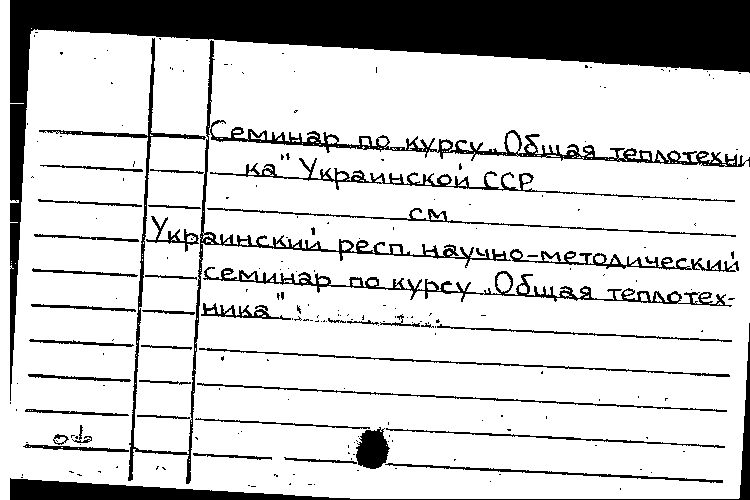 Семинар по курсу „Общая теплотехни
ка" Украинской ССР
см.
Украинский респ. научно-методический
семинар по курсу „Общая теплотех-
ника"
оф